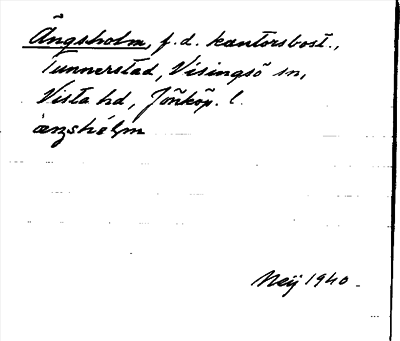 Ängsholm, f.d. kantorsbost.,
Tunnerstad, Visingsö sn,
Vista hd, Jönköp. l.
äŋshólm
Meij 1940.